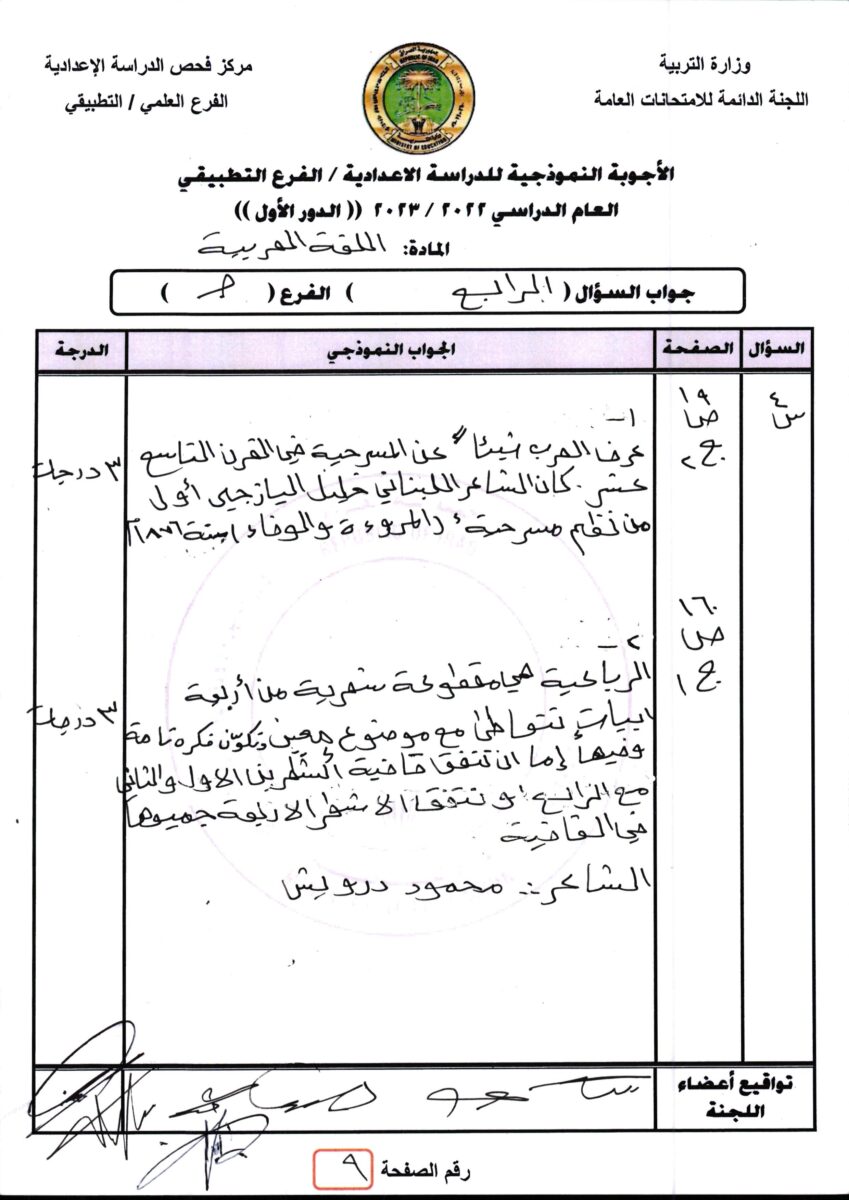 وزارة التربية
اللجنة الدائمة للامتحانات العامة
مركز فحص الدراسة الإعدادية
الفرع العلمي / التطبيقي
REPUBLIC OF IRAQ
MINISTRY OF EDUCATION
الأجوبة النموذجية للدراسة الاعدادية / الفرع التطبيقي
العام الدراسي ٢٠٢٢ / ٢٠٢٣ (( الدور الأول ))
المادة: اللغة العربية
جواب السؤال ( الرابع ) الفرع ( جـ )
السؤال الصفحة الجواب النموذجي الدرجة
س٤
١٩
ص
ج٢
١-
عرف العرب شيئاً عن المسرحية في القرن التاسع
عشر. كان الشاعر اللبناني خليل اليازجي أول
من نظم مسرحية (المروءة والوفاء) سنة ١٨٧٦م
٣ درجات
١٦٠
ص
ج١
٢-
الرباعية هي مقطوعة شعرية من أربعة
ابيات تتواطئ مع موضوع معين وتكوّن فكرة تامة
وفيها إما ان تتفق قافية الشطرين الاول والثاني
مع الرابع او تتفق الاشطر الاربعة جميعها
في القافية
٣ درجات
الشاعر:- محمود درويش
تواقيع أعضاء
اللجنة
رقم الصفحة ٩